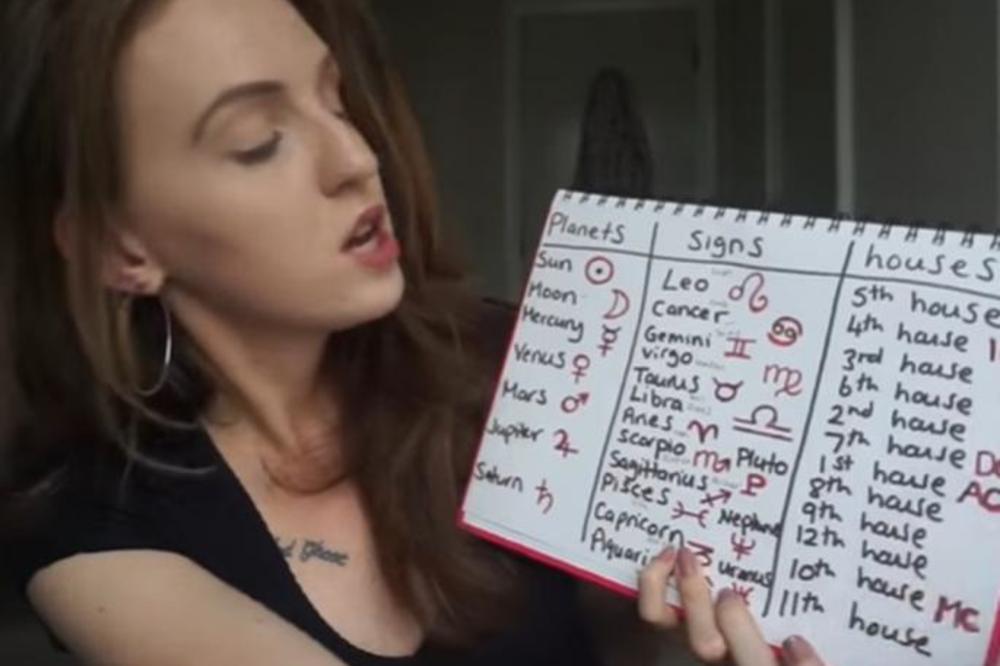 Planets
Sun ☉
Moon ☽
Mercury ☿
Venus ♀
Mars ♂
Jupiter ♃
Saturn ♄
Signs
Leo ♌
Cancer ♋
Gemini ♊
Virgo ♍
Taurus ♉
Libra ♎
Aries ♈
Scorpio ♏ Pluto ♇
Sagittarius ♐
Pisces ♓ Neptune ♆
Capricorn ♑ Uranus
houses
5th house
4th house
3rd house
6th house
2nd house
7th house
1st house AC
8th house
9th house
12th house
10th house MC
11th house